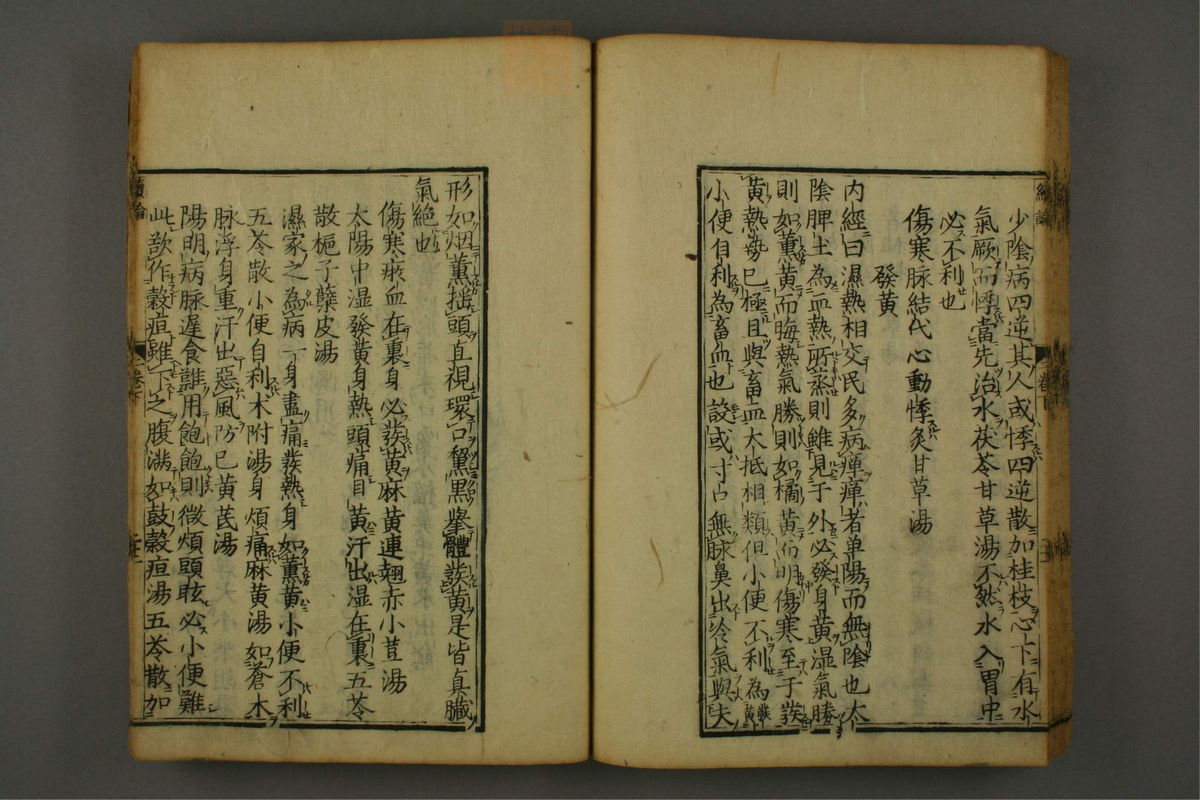 少陰病四逆其人或悸四逆散加桂枝心下有水
氣厥而悸當先治水茯苓甘草湯不然水入胃中
必不利也
傷寒脉結代心動悸炙甘草湯
發黃
内經曰濕熱相交民多病瘅瘅者单陽而無陰也太
陰脾土為血熱所蒸則雖見于外必發身黃湿氣勝
則如薰黃而晦熱氣勝則如橘黃而明傷寒至于發
黃熱勢已極且與畜血大抵相類但小便不利為發黃
小便自利為畜血也設或寸口無脉鼻出冷氣與夫
形如烟薰揺頭直視環口黧黒擧體發黃是皆真臓
氣絶也
傷寒瘀血在裏身必發黃麻黃連翹赤小荳湯
太陽中湿發黃身熱頭痛目黃汗出湿在裏五苓
散梔子蘗皮湯
濕家之為病一身盡痛發熱身如薰黃小便不利
五苓散小便自利朮附湯身煩痛麻黃湯加蒼朮
脉浮身重汗出惡風防已黃芪湯
陽明病脉遲食難用飽飽則微煩頭眩必小便難
此欲作穀疸雖下之腹満如故穀疸湯五苓散加
續論
卷下